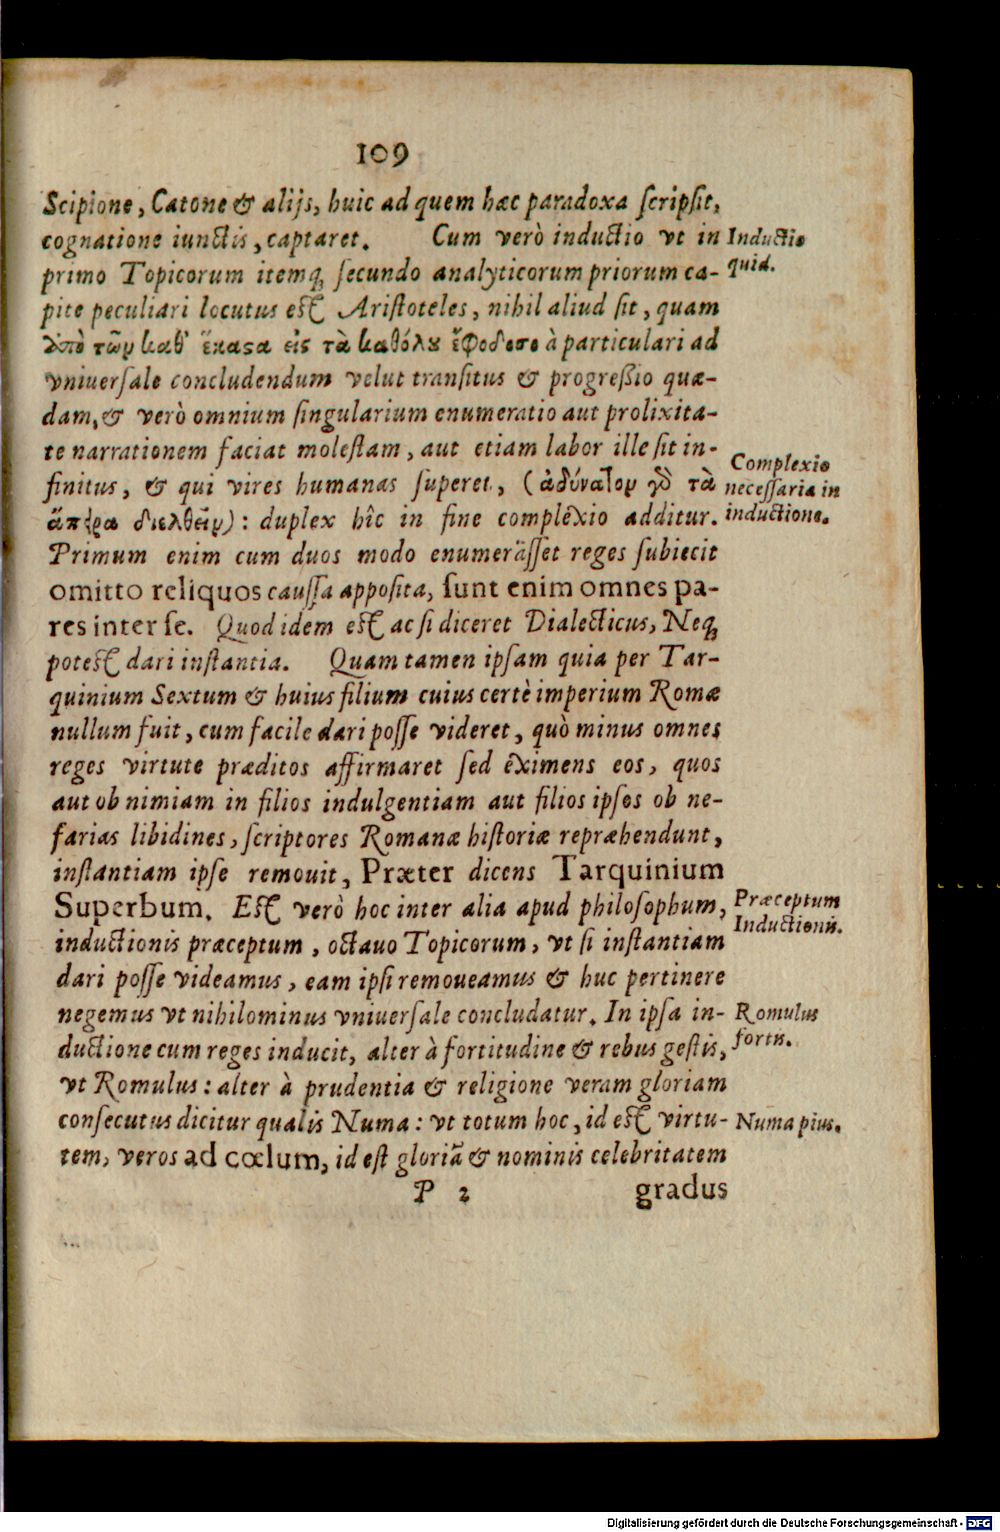 109
Scipione, Catone & alijs, huic ad quem hæc paradoxa ſcripſit,
cognatione iunctis, captaret. Cum verò inductio vt in
Inductio
quid.
primo Topicorum itemq́; ſecundo analyticorum priorum ca-
pite peculiari locutus est Ariſtoteles, nihil aliud ſit, quam
ἀπὸ τῶν καθ' ἕκαστα εἰς τὰ καθόλου ἔφοδος à particulari ad
vniuerſale concludendum velut tranſitus & progreßio quæ-
dam, & verò omnium ſingularium enumeratio aut prolixita-
te narrationem faciat moleſtam, aut etiam labor ille ſit in-
finitus, & qui vires humanas ſuperet, (ἀδύνατον γὸ τὰ
ἄπειρα διελθεῖν): duplex hîc in fine complexio additur.
Complexio
neceſſaria in
inductione.
Primum enim cum duos modo enumeràſſet reges ſubiecit
omitto reliquos cauſſa appoſita, ſunt enim omnes pa-
res inter ſe. Quod idem est ac ſi diceret Dialecticus, Neq́;
potest dari inſtantia. Quam tamen ipſam quia per Tar-
quinium Sextum & huius filium cuius certè imperium Romæ
nullum fuit, cum facile dari poſſe videret, quò minus omnes
reges virtute præditos affirmaret ſed eximens eos, quos
aut ob nimiam in filios indulgentiam aut filios ipſos ob ne-
farias libidines, ſcriptores Romanæ hiſtoriæ repræhendunt,
inſtantiam ipſe remouit, Præter dicens Tarquinium
Superbum. Est verò hoc inter alia apud philoſophum,
Præceptum
Inductionis.
inductionis præceptum, octauo Topicorum, vt ſi inſtantiam
dari poſſe videamus, eam ipſi remoueamus & huc pertinere
negemus vt nihilominus vniuerſale concludatur. In ipſa in-
Romulus
fortis.
ductione cum reges inducit, alter à fortitudine & rebus geſtis,
vt Romulus: alter à prudentia & religione veram gloriam
conſecutus dicitur qualis Numa: vt totum hoc, id est virtu-
Numa pius.
tem, veros ad cœlum, id eſt gloriã & nominis celebritatem
P 2
gradus
Digitalisierung gefördert durch die Deutsche Forschungsgemeinschaft - DFG